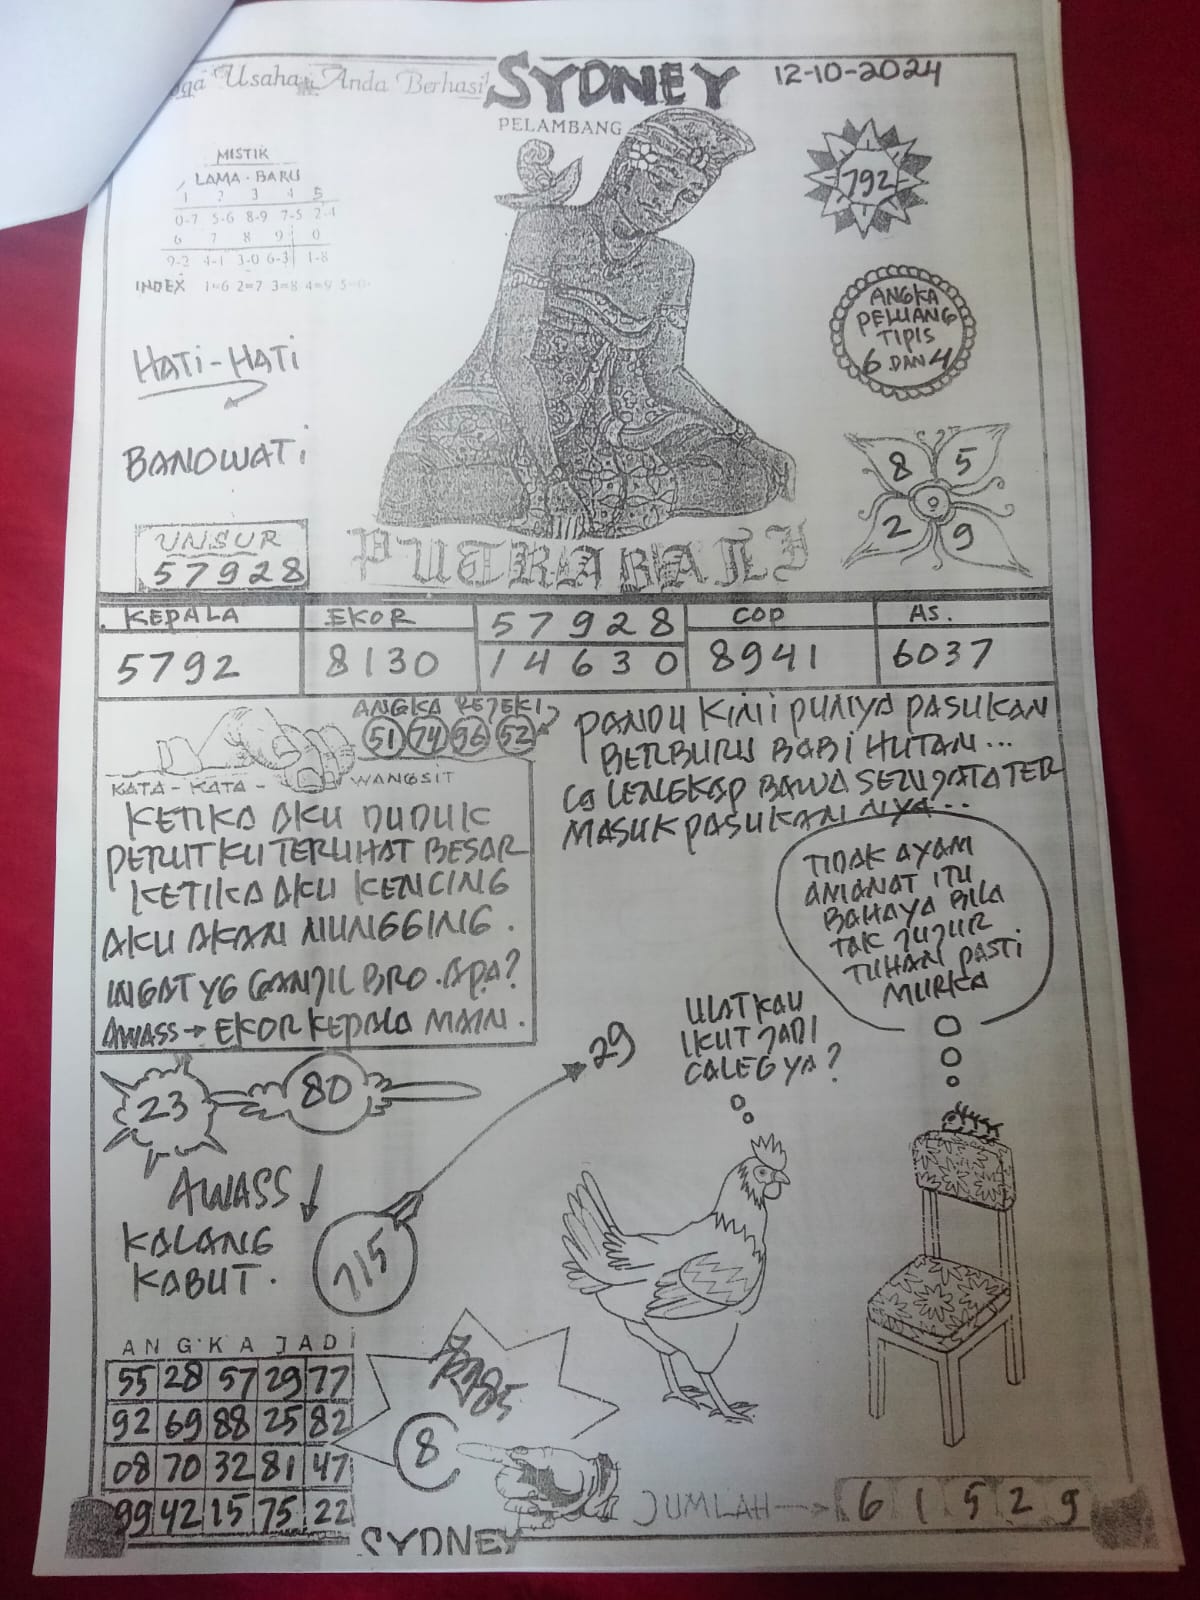 Usaha Anda Berhasil
SYDNEY
12-10-2024
PELAMBANG
MISTIK
LAMA - BARU
1 2 3 4 5
0-7 5-6 8-9 7-5 2-4
6 7 8 9 0
9-2 4-1 3-0 6-3 1-8
INDEX 1=6 2=7 3=8 4=9 5=0
792
ANGKA
PELUANG
TIPIS
6 DAN 4
HATI-HATI
BANOWATI
8 5
9
2 9
UNSUR
57928
PUTRA BALI
KEPALA EKOR 57928 COP AS.
5792 8130 14630 8941 6037
ANGKA REJEKI
51 74 96 52
KATA-KATA-WANGSIT
KETIKA AKU DUDUK
PERUTKU TERLIHAT BESAR
KETIKA AKU KENCING
AKU AKAN NUNGGING.
INGAT YG GANJIL BRO. APA?
AWASS → EKOR KEPALA MAIN.
PANDU KINI PUNYA PASUKAN
BERBURU BABI HUTAN...
LENGKAP BAWA
MASUK PASUKAN NYA...
TIDAK AYAM
AMANAT ITU
BAHAYA BILA
TAK JUJUR
TUHAN PASTI
MURKA
ULAT KAU
IKUT JADI
CALEG YA?
23
80
29
AWASS
KALANG
KABUT.
715
ANGKA JADI
55 28 57 29 77
92 69 88 25 82
08 70 32 81 47
99 42 15 75 22
8
JUMLAH → 6 1 5 2 9
SYDNEY